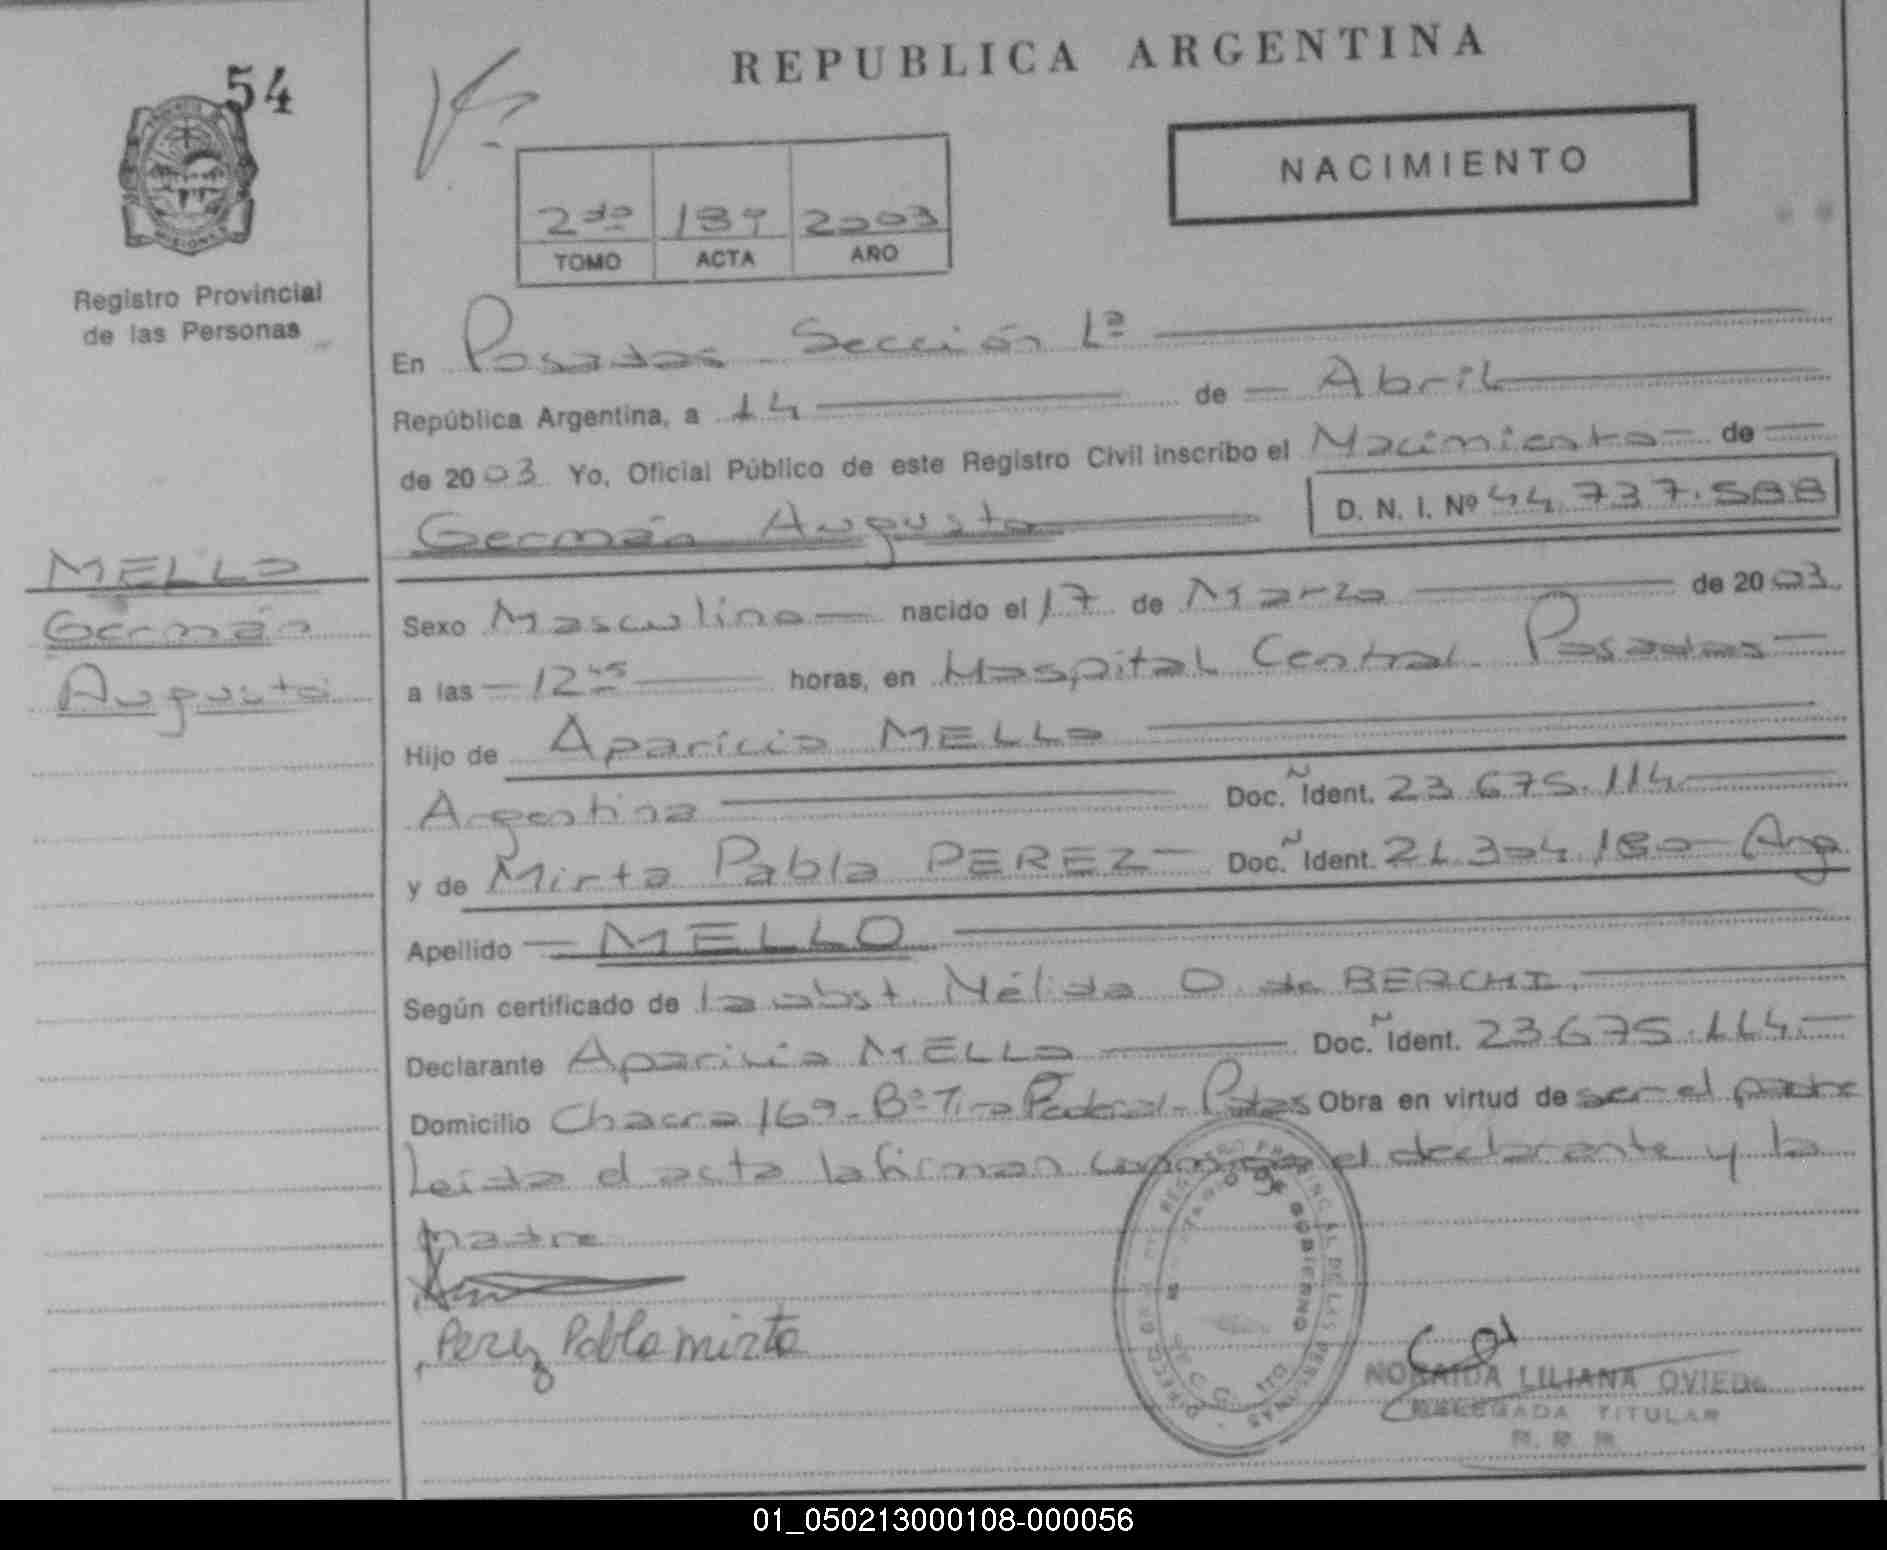 54
REPUBLICA ARGENTINA
NACIMIENTO
2do 2003
TOMO ACTA AÑO
Registro Provincial
de las Personas
En Posadas Sección 1ª
República Argentina, a 14 de Abril
de 2003 Yo, Oficial Público de este Registro Civil inscribo el Nacimiento de
Germán Augusto D. N. I. Nº 44.737.588
MELLO
Germán
Augusto
Sexo Masculino nacido el 17 de Marzo de 2003
a las 12 45 horas, en Hospital Central Posadas
Hijo de Aparicio MELLO
Argentina Doc. Ñ Ident. 23.675.114
y de Mirta Pabla PEREZ Doc. Ñ Ident. 21.304.180 Arg
Apellido MELLO
Según certificado de la obst. Nélida O. de BERCHI.
Declarante Aparicio MELLO Doc. Ñ Ident. 23.675.114.
Domicilio Chacra 169 - Bº Tiro Federal - Pdas Obra en virtud de ser el padre
Leida el acta la firman conmigo el declarante y la
madre
Perez Pabla mirta
NORAIDA LILIANA OVIEDO
DELEGADA TITULAR
R. P. P.
01_050213000108-000056